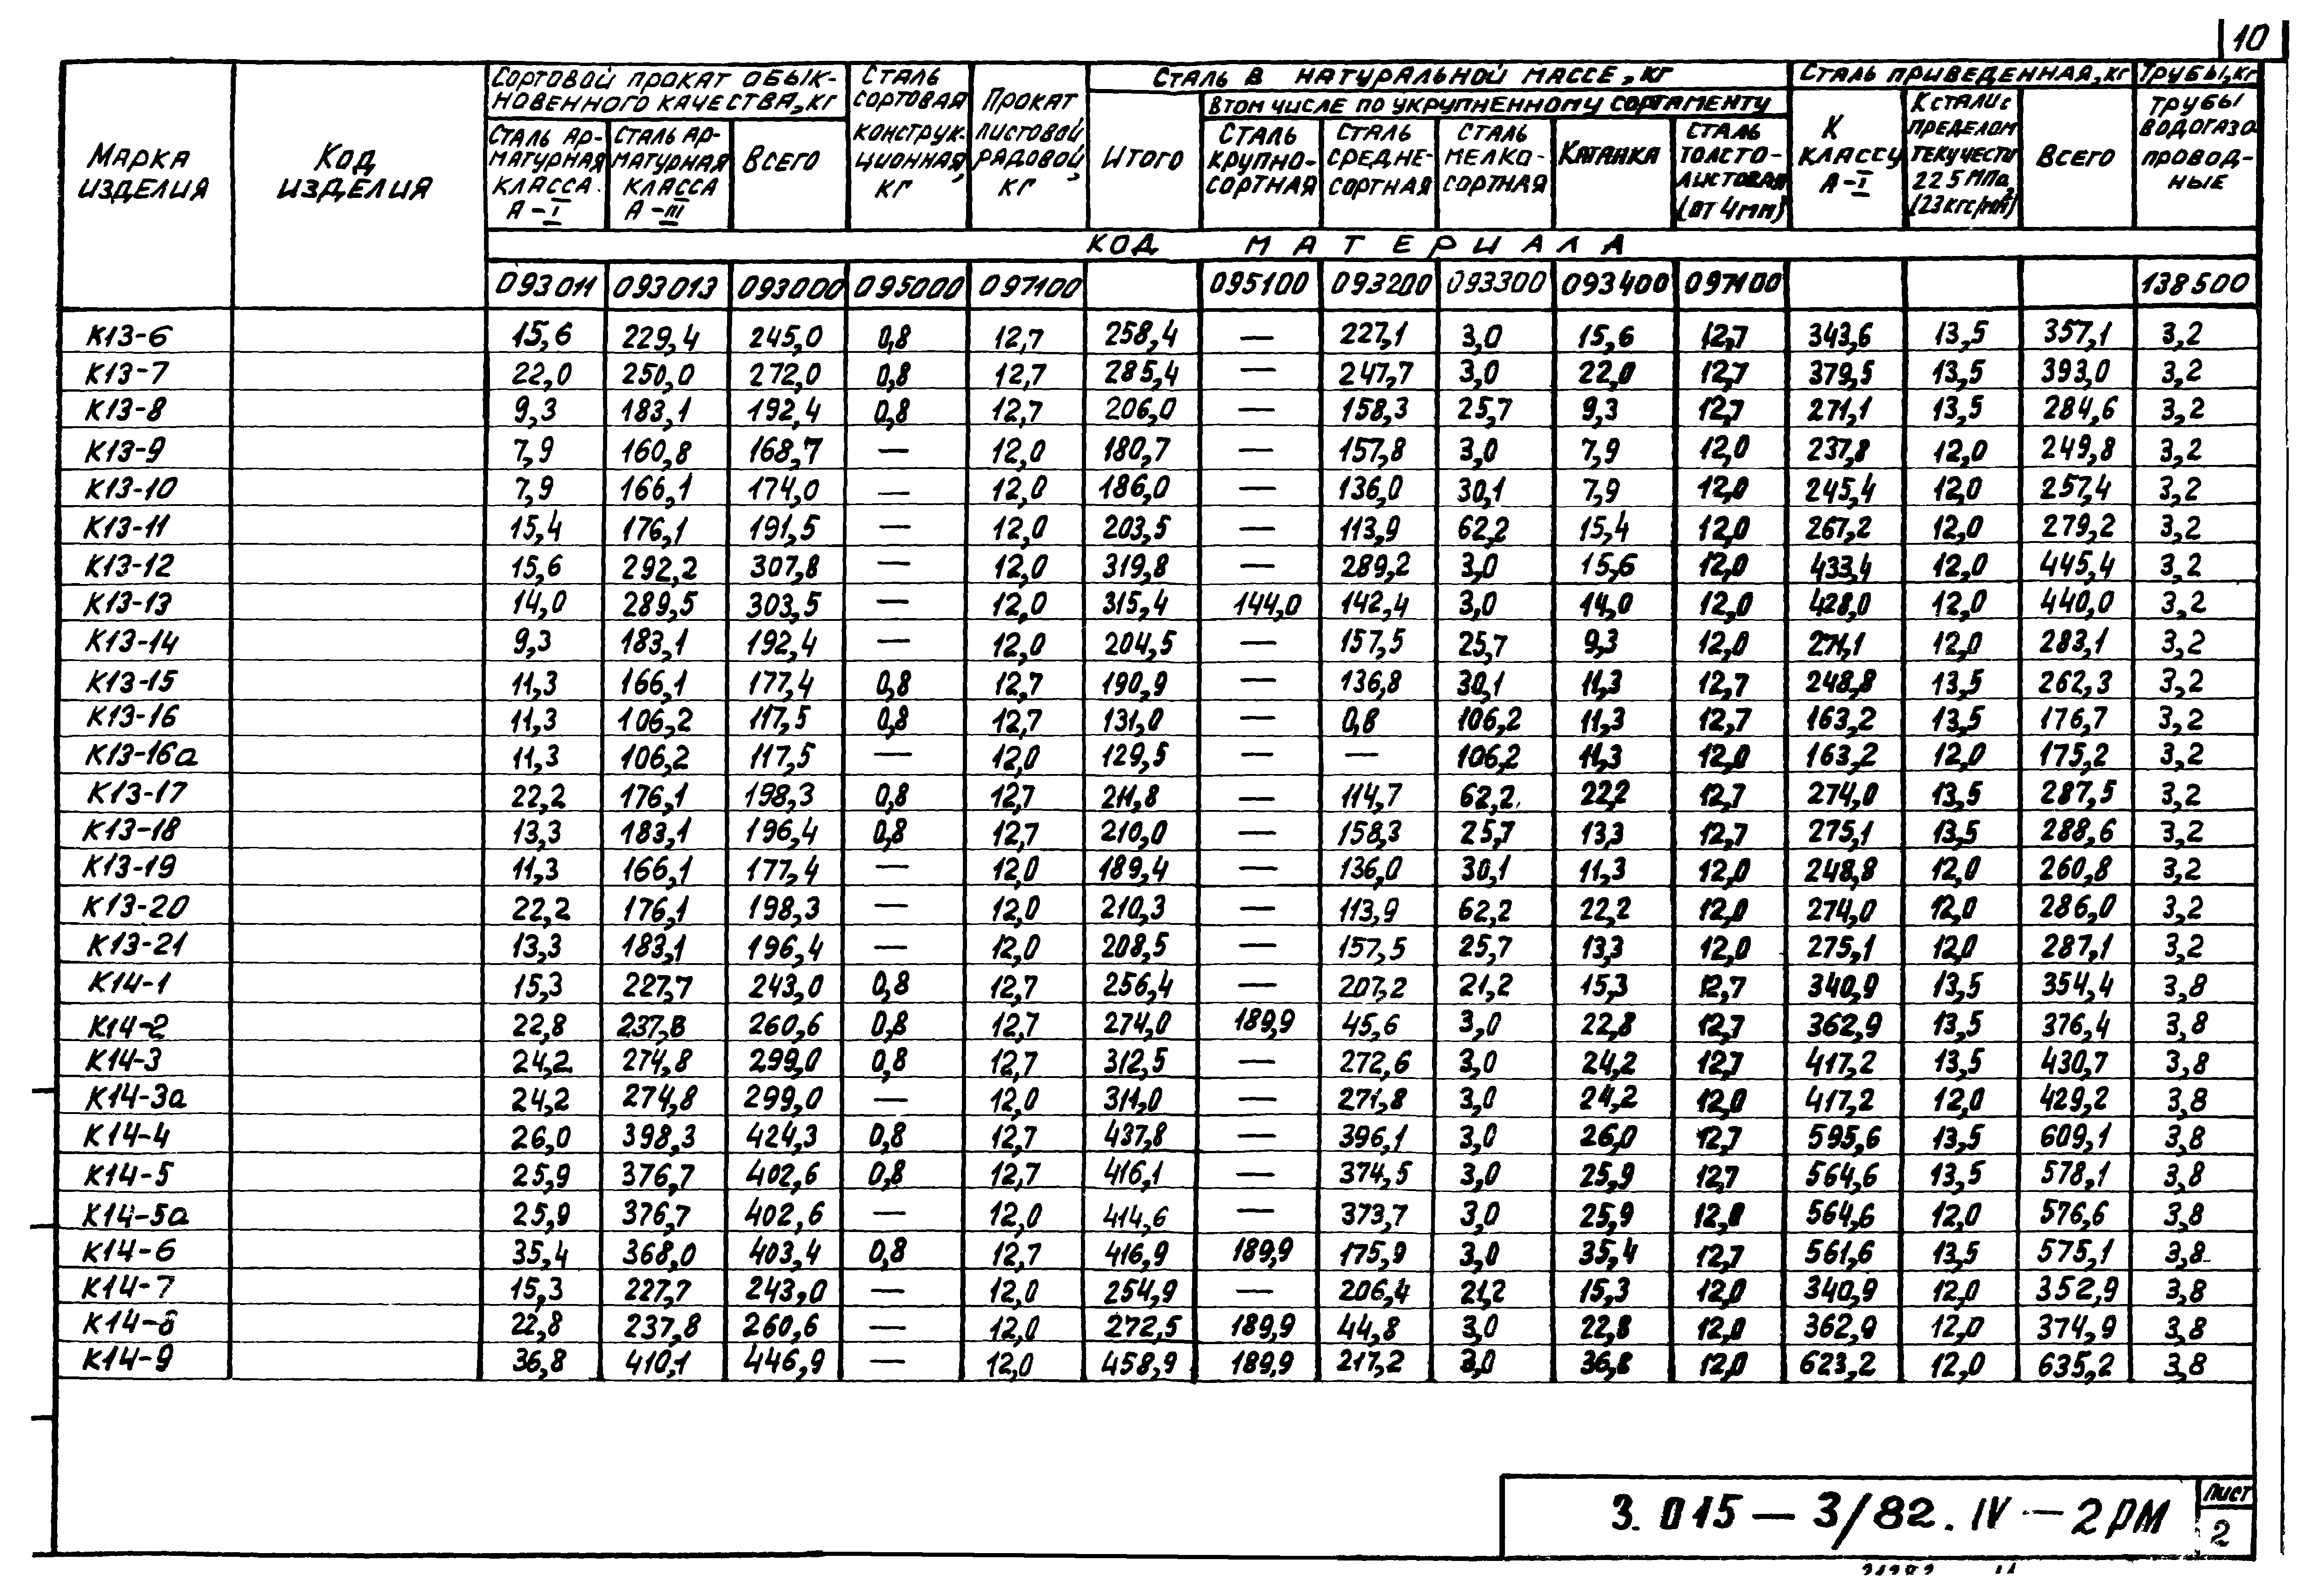 10
Марка изделия | Код изделия | Сортовой прокат обыкновенного качества, кг | Сталь сортовая конструкционная, кг | Прокат листовой рядовой, кг | Сталь в натуральной массе, кг | Сталь приведенная, кг | Трубы, кг
Сталь арматурная класса А-I | Сталь арматурная класса А-III | Всего | Итого | В том числе по укрупненному сортаменту | К классу А-I | К стали с пределом текучести 225 МПа (23 кгс/мм²) | Всего | Трубы водогазопроводные
Сталь крупносортная | Сталь среднесортная | Сталь мелкосортная | Катанка | Сталь толстолистовая (от 4 мм)
Код материала
093011 093013 093000 095000 097100 095100 093200 093300 093400 097100 138500
К13-6 15,6 229,4 245,0 0,8 12,7 258,4 — 227,1 3,0 15,6 12,7 343,6 13,5 357,1 3,2
К13-7 22,0 250,0 272,0 0,8 12,7 285,4 — 247,7 3,0 22,0 12,7 379,5 13,5 393,0 3,2
К13-8 9,3 183,1 192,4 0,8 12,7 206,0 — 158,3 25,7 9,3 12,7 271,1 13,5 284,6 3,2
К13-9 7,9 160,8 168,7 — 12,0 180,7 — 157,8 3,0 7,9 12,0 237,8 12,0 249,8 3,2
К13-10 7,9 166,1 174,0 — 12,0 186,0 — 136,0 30,1 7,9 12,0 245,4 12,0 257,4 3,2
К13-11 15,4 176,1 191,5 — 12,0 203,5 — 113,9 62,2 15,4 12,0 267,2 12,0 279,2 3,2
К13-12 15,6 292,2 307,8 — 12,0 319,8 — 289,2 3,0 15,6 12,0 433,4 12,0 445,4 3,2
К13-13 14,0 289,5 303,5 — 12,0 315,4 144,0 142,4 3,0 14,0 12,0 428,0 12,0 440,0 3,2
К13-14 9,3 183,1 192,4 — 12,0 204,5 — 157,5 25,7 9,3 12,0 271,1 12,0 283,1 3,2
К13-15 11,3 166,1 177,4 0,8 12,7 190,9 — 136,8 30,1 11,3 12,7 248,8 13,5 262,3 3,2
К13-16 11,3 106,2 117,5 0,8 12,7 131,0 — 0,8 106,2 11,3 12,7 163,2 13,5 176,7 3,2
К13-16а 11,3 106,2 117,5 — 12,0 129,5 — — 106,2 11,3 12,0 163,2 12,0 175,2 3,2
К13-17 22,2 176,1 198,3 0,8 12,7 211,8 — 114,7 62,2 22,2 12,7 274,0 13,5 287,5 3,2
К13-18 13,3 183,1 196,4 0,8 12,7 210,0 — 158,3 25,7 13,3 12,7 275,1 13,5 288,6 3,2
К13-19 11,3 166,1 177,4 — 12,0 189,4 — 136,0 30,1 11,3 12,0 248,8 12,0 260,8 3,2
К13-20 22,2 176,1 198,3 — 12,0 210,3 — 113,9 62,2 22,2 12,0 274,0 12,0 286,0 3,2
К13-21 13,3 183,1 196,4 — 12,0 208,5 — 157,5 25,7 13,3 12,0 275,1 12,0 287,1 3,2
К14-1 15,3 227,7 243,0 0,8 12,7 256,4 — 207,2 21,2 15,3 12,7 340,9 13,5 354,4 3,8
К14-2 22,8 237,8 260,6 0,8 12,7 274,0 189,9 45,6 3,0 22,8 12,7 362,9 13,5 376,4 3,8
К14-3 24,2 274,8 299,0 0,8 12,7 312,5 — 272,6 3,0 24,2 12,7 417,2 13,5 430,7 3,8
К14-3а 24,2 274,8 299,0 — 12,0 311,0 — 271,8 3,0 24,2 12,0 417,2 12,0 429,2 3,8
К14-4 26,0 398,3 424,3 0,8 12,7 437,8 — 396,1 3,0 26,0 12,7 595,6 13,5 609,1 3,8
К14-5 25,9 376,7 402,6 0,8 12,7 416,1 — 374,5 3,0 25,9 12,7 564,6 13,5 578,1 3,8
К14-5а 25,9 376,7 402,6 — 12,0 414,6 — 373,7 3,0 25,9 12,0 564,6 12,0 576,6 3,8
К14-6 35,4 368,0 403,4 0,8 12,7 416,9 189,9 175,9 3,0 35,4 12,7 561,6 13,5 575,1 3,8
К14-7 15,3 227,7 243,0 — 12,0 254,9 — 206,4 21,2 15,3 12,0 340,9 12,0 352,9 3,8
К14-8 22,8 237,8 260,6 — 12,0 272,5 189,9 44,8 3,0 22,8 12,0 362,9 12,0 374,9 3,8
К14-9 36,8 410,1 446,9 — 12,0 458,9 189,9 217,2 3,0 36,8 12,0 623,2 12,0 635,2 3,8
3.015—3/82.IV—2РМ
Лист
2